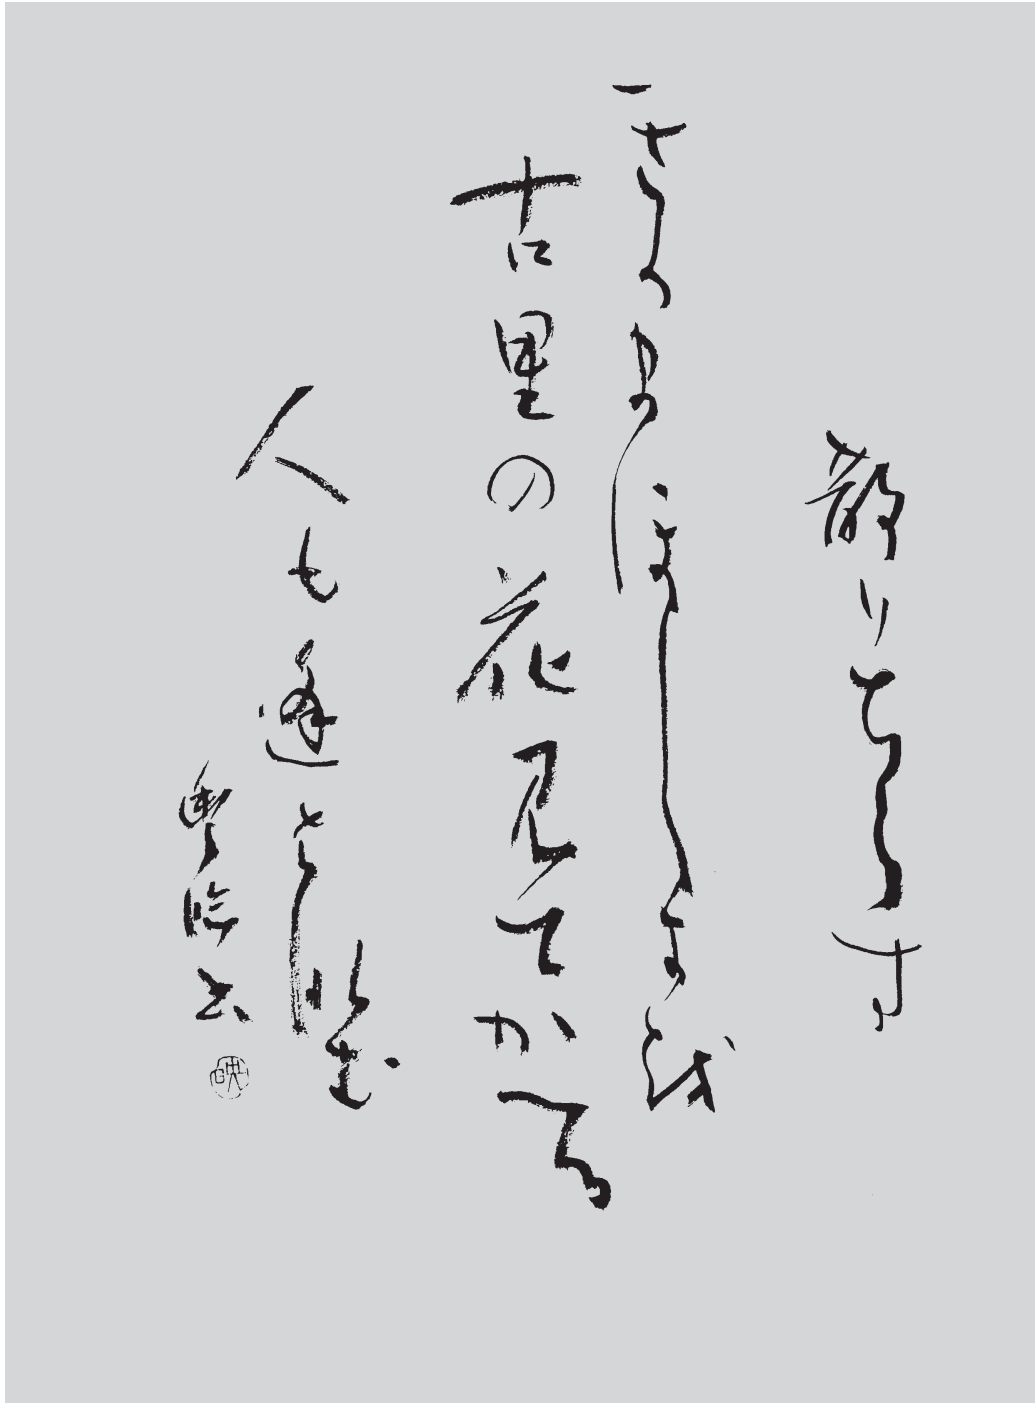 散りちらす
きかまほしきを
古里の花見てかへる
人も逢はなむ